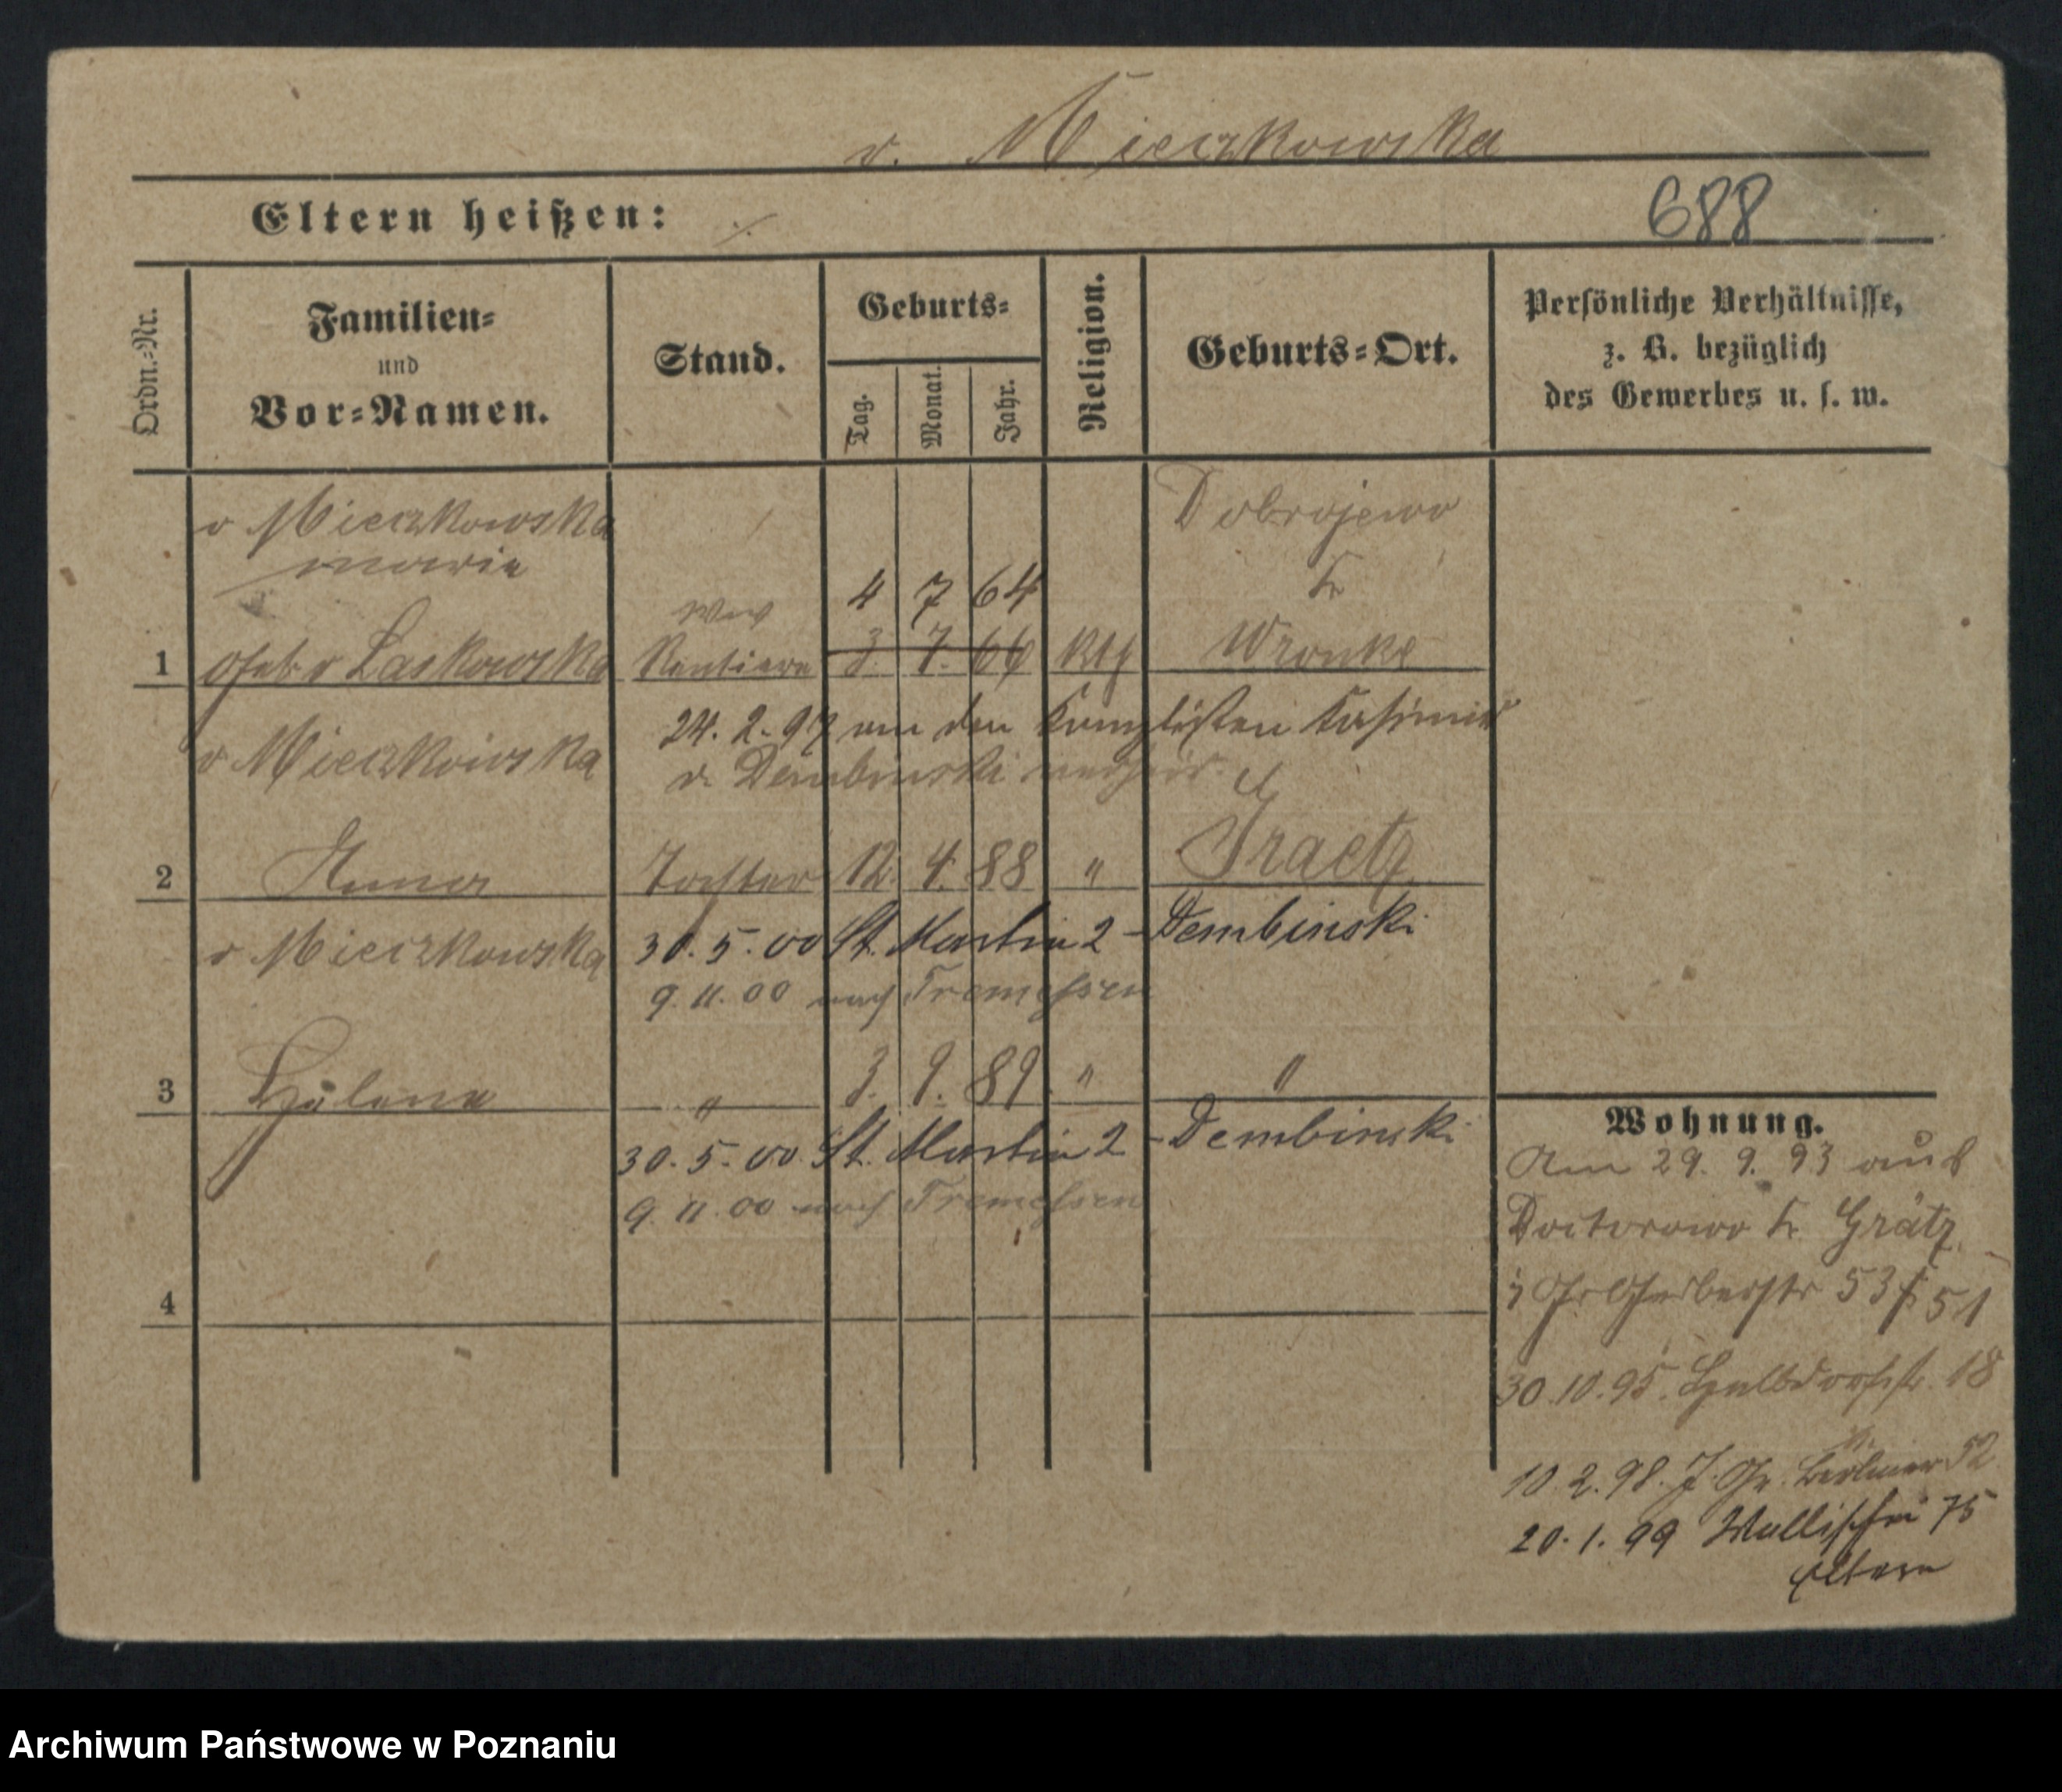 v. Mieczkowska
Eltern heißen: ·/·
688
Ordn.-Nr.
Familien-
und
Vor-Namen.
Stand.
Geburts-
Tag.
Monat.
Jahr.
Religion.
Geburts-Ort.
Persönliche Verhältnisse,
z. B. bezüglich
des Gewerbes u. s. w.
v Mieczkowska
Marie
Dobrojewo
Kr
4 7 64
1 geb v Laskowska Wwe Rentiere 3. 7. 66 kth Wronke
24. 2. 97 an den Kanzlisten Kasimir
v. Dembinski verheir.
v Mieczkowska
2 Anna Tochter 12. 4. 88 " Graetz
v Mieczkowska 30. 5. 00 St. Martin 2 - Dembinski
9. 11. 00 nach Tremessen
3 Helene " 3. 9. 89. " "
30. 5. 00. St. Martin 2 - Dembinski
9. 11. 00 nach Tremessen
4
Wohnung.
Am 29. 9. 93 aus
Doctorowo Kr Grätz
Gr Gerberstr 53 51
30. 10. 95. Halbdorfstr. 18
10. 2. 98. Gr. Berliner 52
20. 1. 99 Wallischei 75
Eltern
Archiwum Państwowe w Poznaniu